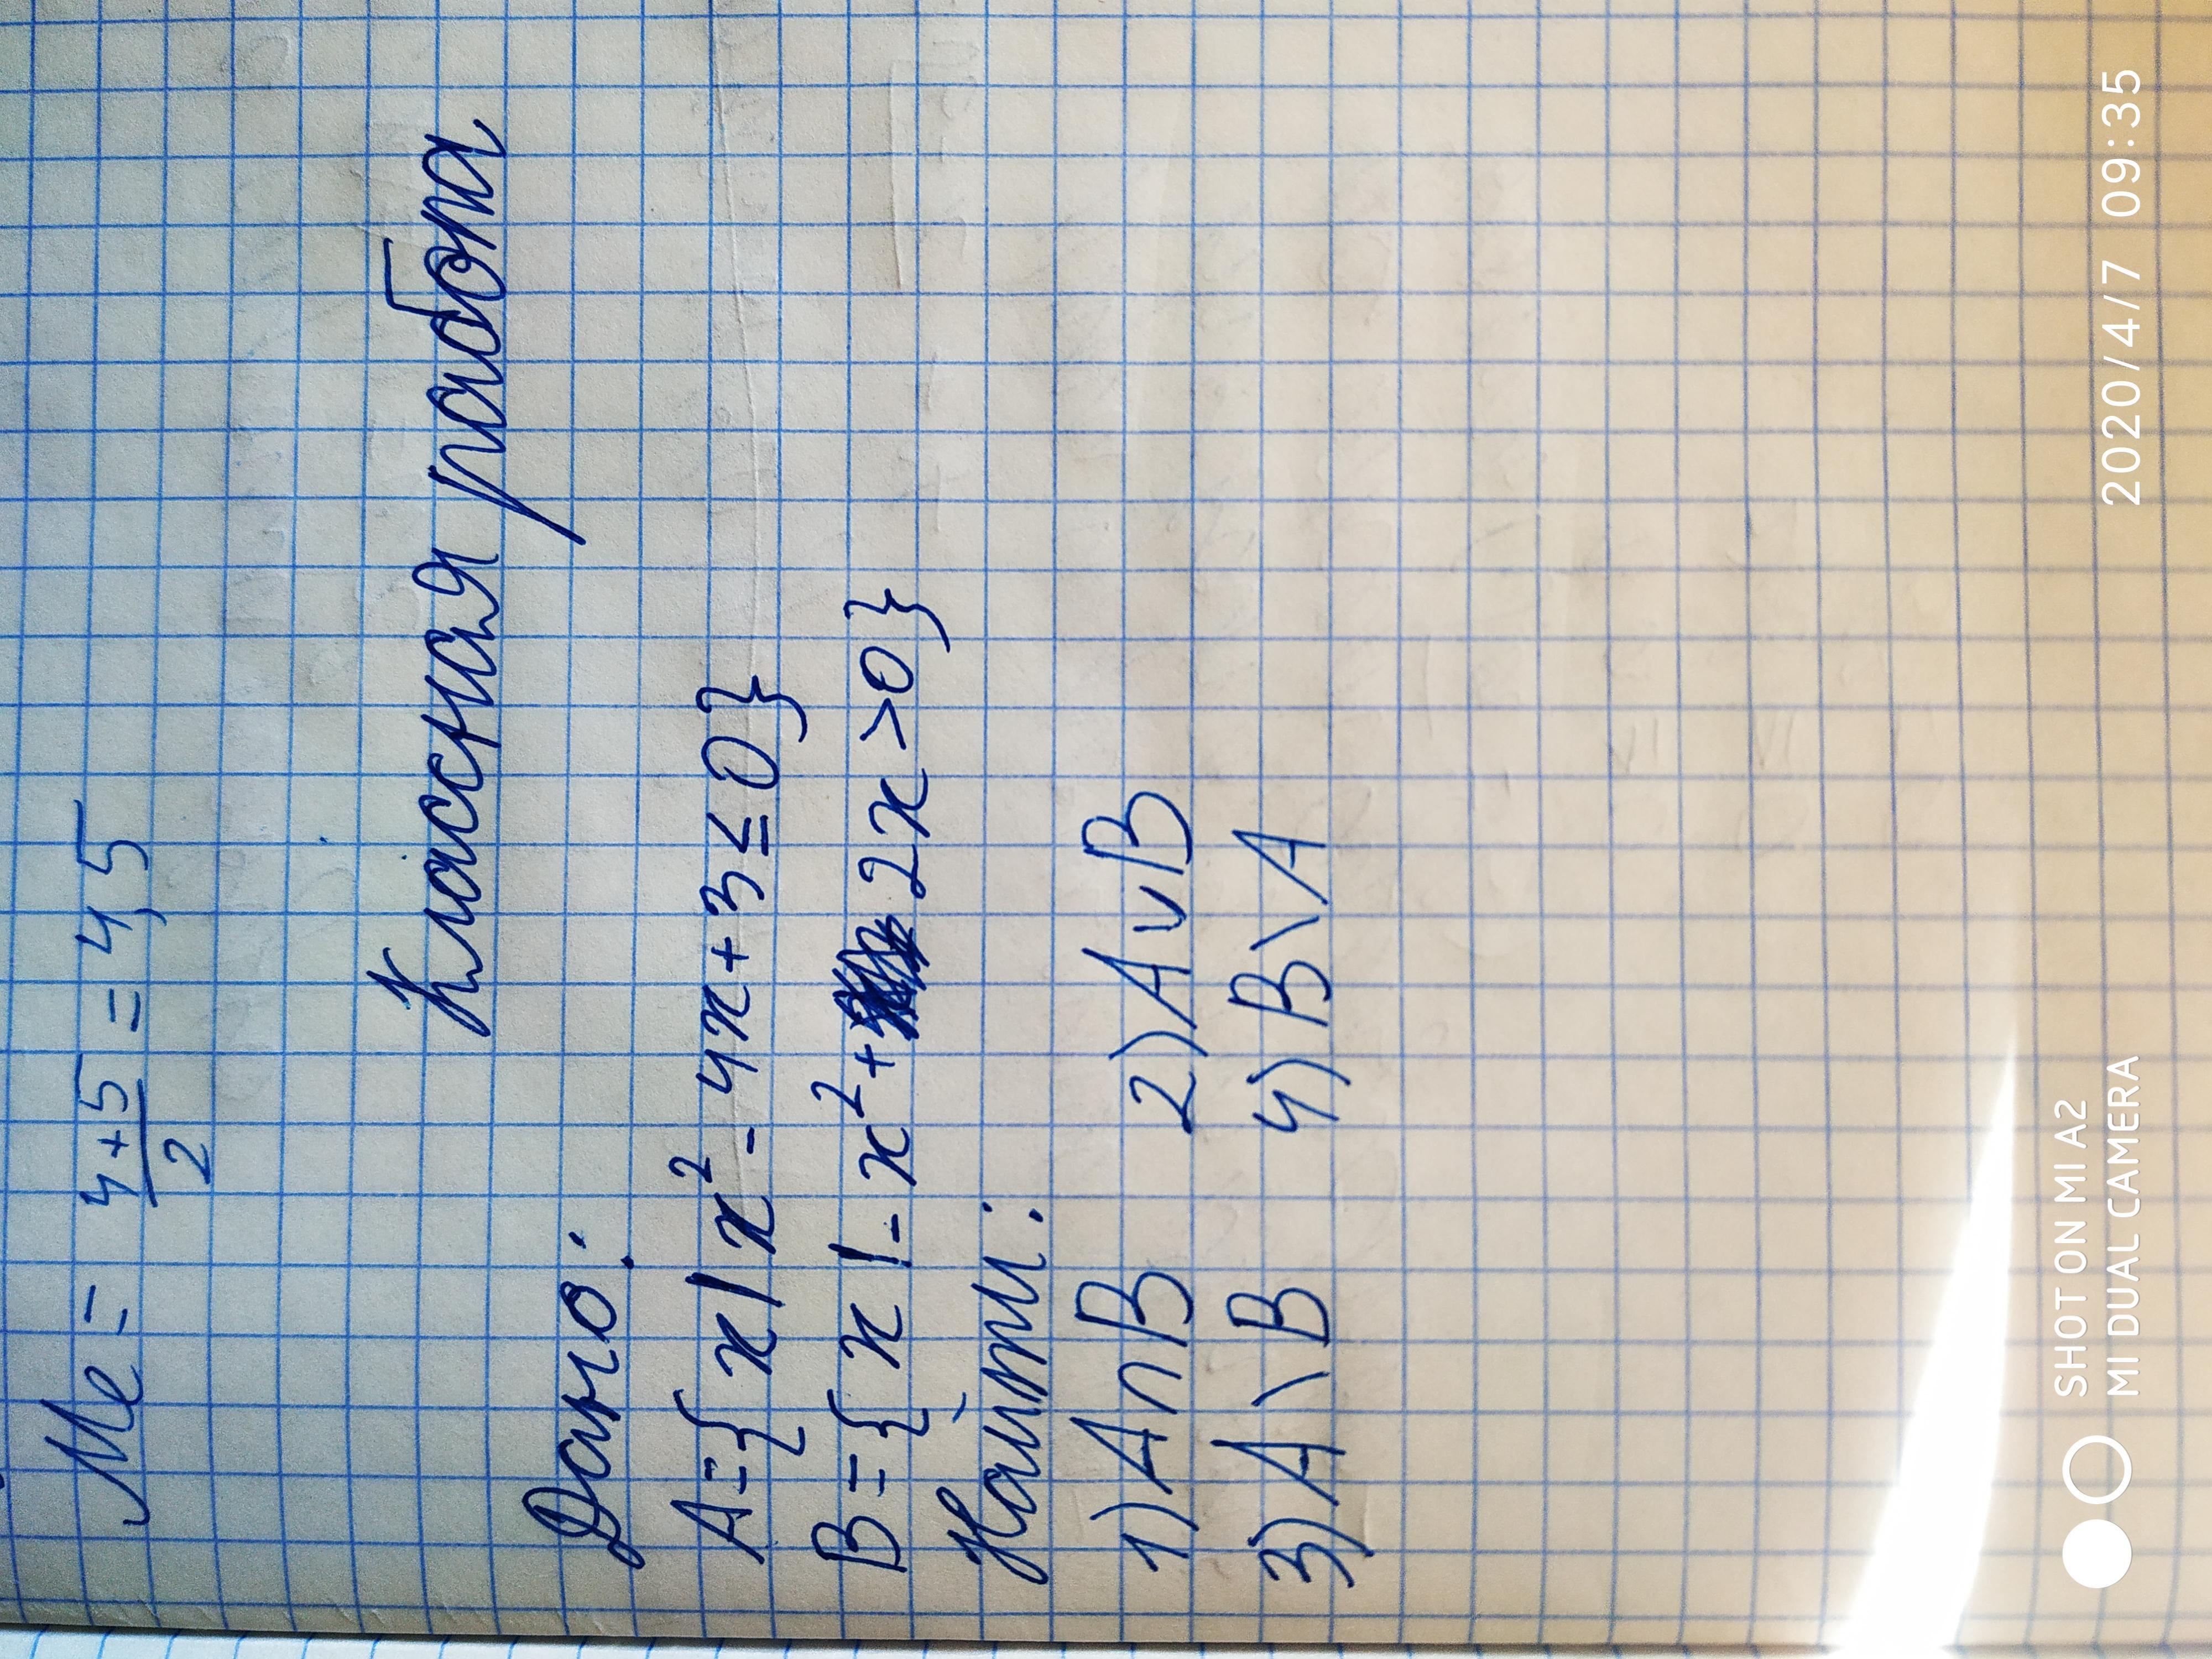 Ме = 4+5/2 = 4,5
Классная работа
Дано:
A={x|x²-4x+3≤0}
B={x|-x²+2x>0}
Найти:
1)A∩B 2)A∪B
3)A\B 4)B\A
SHOT ON MI A2
MI DUAL CAMERA
2020/4/7 09:35